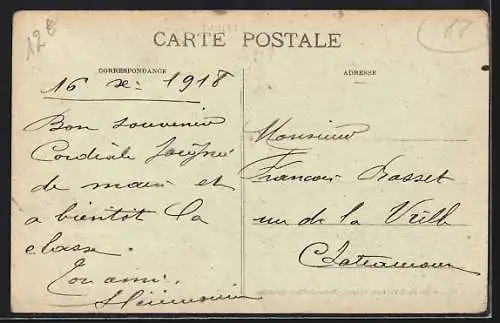 12€
CARTE POSTALE
CORRESPONDANCE
16 1918
Bon souvenir
Cordiale
de main et
a bientôt la
classe
Ton ami
ADRESSE
Monsieur
François Rasset
rue de la Ville